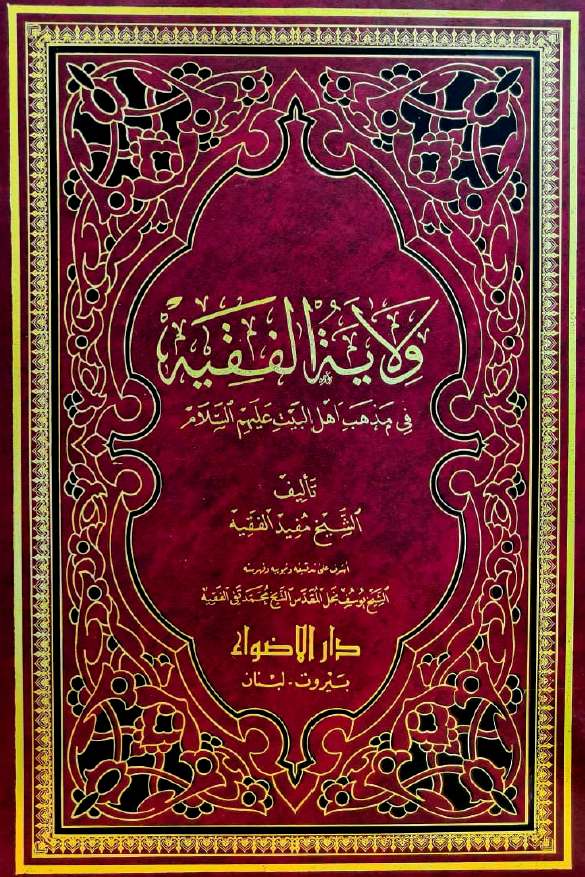 ولاية الفقيه
في مذهب أهل البيت عليهم السلام
تأليف
الشيخ مفيد الفقيه
أشرف على تدقيقه وتبويبه وفهرسته
الشيخ يوسف نجل المقدس الشيخ محمد تقي الفقيه
دار الأضواء
بيروت - لبنان